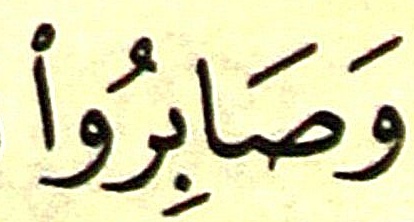 وَصَابِرُوا۟